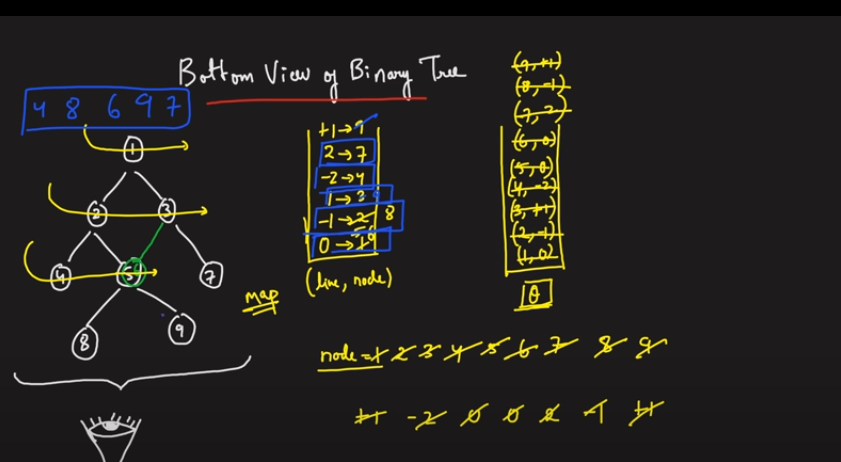 Bottom View of Binary Tree
4 8 6 9 7
1
2 3
4 5 7
8 9
+1→9
2→7
-2→4
1→3 9
-1→2 8
0→1
(line, node)
map
(9,+1)
(8,-1)
(7,2)
(6,0)
(5,0)
(4,-2)
(3,+1)
(2,-1)
(1,0)
Q
node = 1 2 3 4 5 6 7 8 9
+1 -2 0 0 2 -1 +1